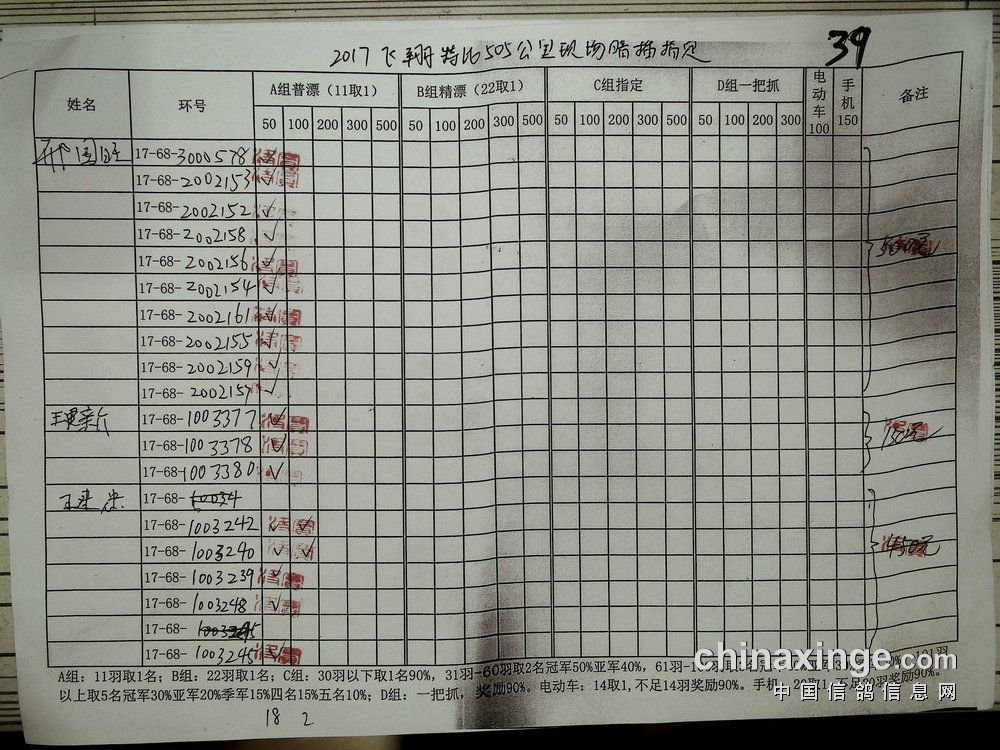 2017飞翔特比505公里现场暗插指定 39
姓名 环号 A组普漂（11取1） B组精漂（22取1） C组指定 D组一把抓 电动车100 手机150 备注
50 100 200 300 500 50 100 200 300 500 50 100 200 300 500 50 100 200 300
17-68-3000578 ✓
17-68-2002153 ✓
17-68-2002152 ✓
17-68-2002158 ✓
17-68-2002156 ✓ 500元
17-68-2002154 ✓
17-68-2002161 ✓
17-68-2002155 ✓
17-68-2002159 ✓
17-68-2002157 ✓
17-68-1003377 ✓
17-68-1003378 ✓ 150元
17-68-1003380 ✓
17-68-
17-68-1003242 ✓ ✓
17-68-1003240 ✓ ✓ 450元
17-68-1003239 ✓
17-68-1003248 ✓
17-68-
17-68-1003245 ✓
A组：11羽取1名；B组：22羽取1名；C组：30羽以下取1名90%，31羽-60羽取2名冠军50%亚军40%，61羽-
以上取5名冠军30%亚军20%季军15%四名15%五名10%；D组：一把抓，奖励90%。电动车：14取1，不足14羽奖励90%。手机：20取1，不足20羽奖励90%。
18 2
chinaxinge.com
中国信鸽信息网